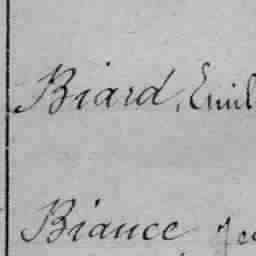 Biard, Emil
Biance Je